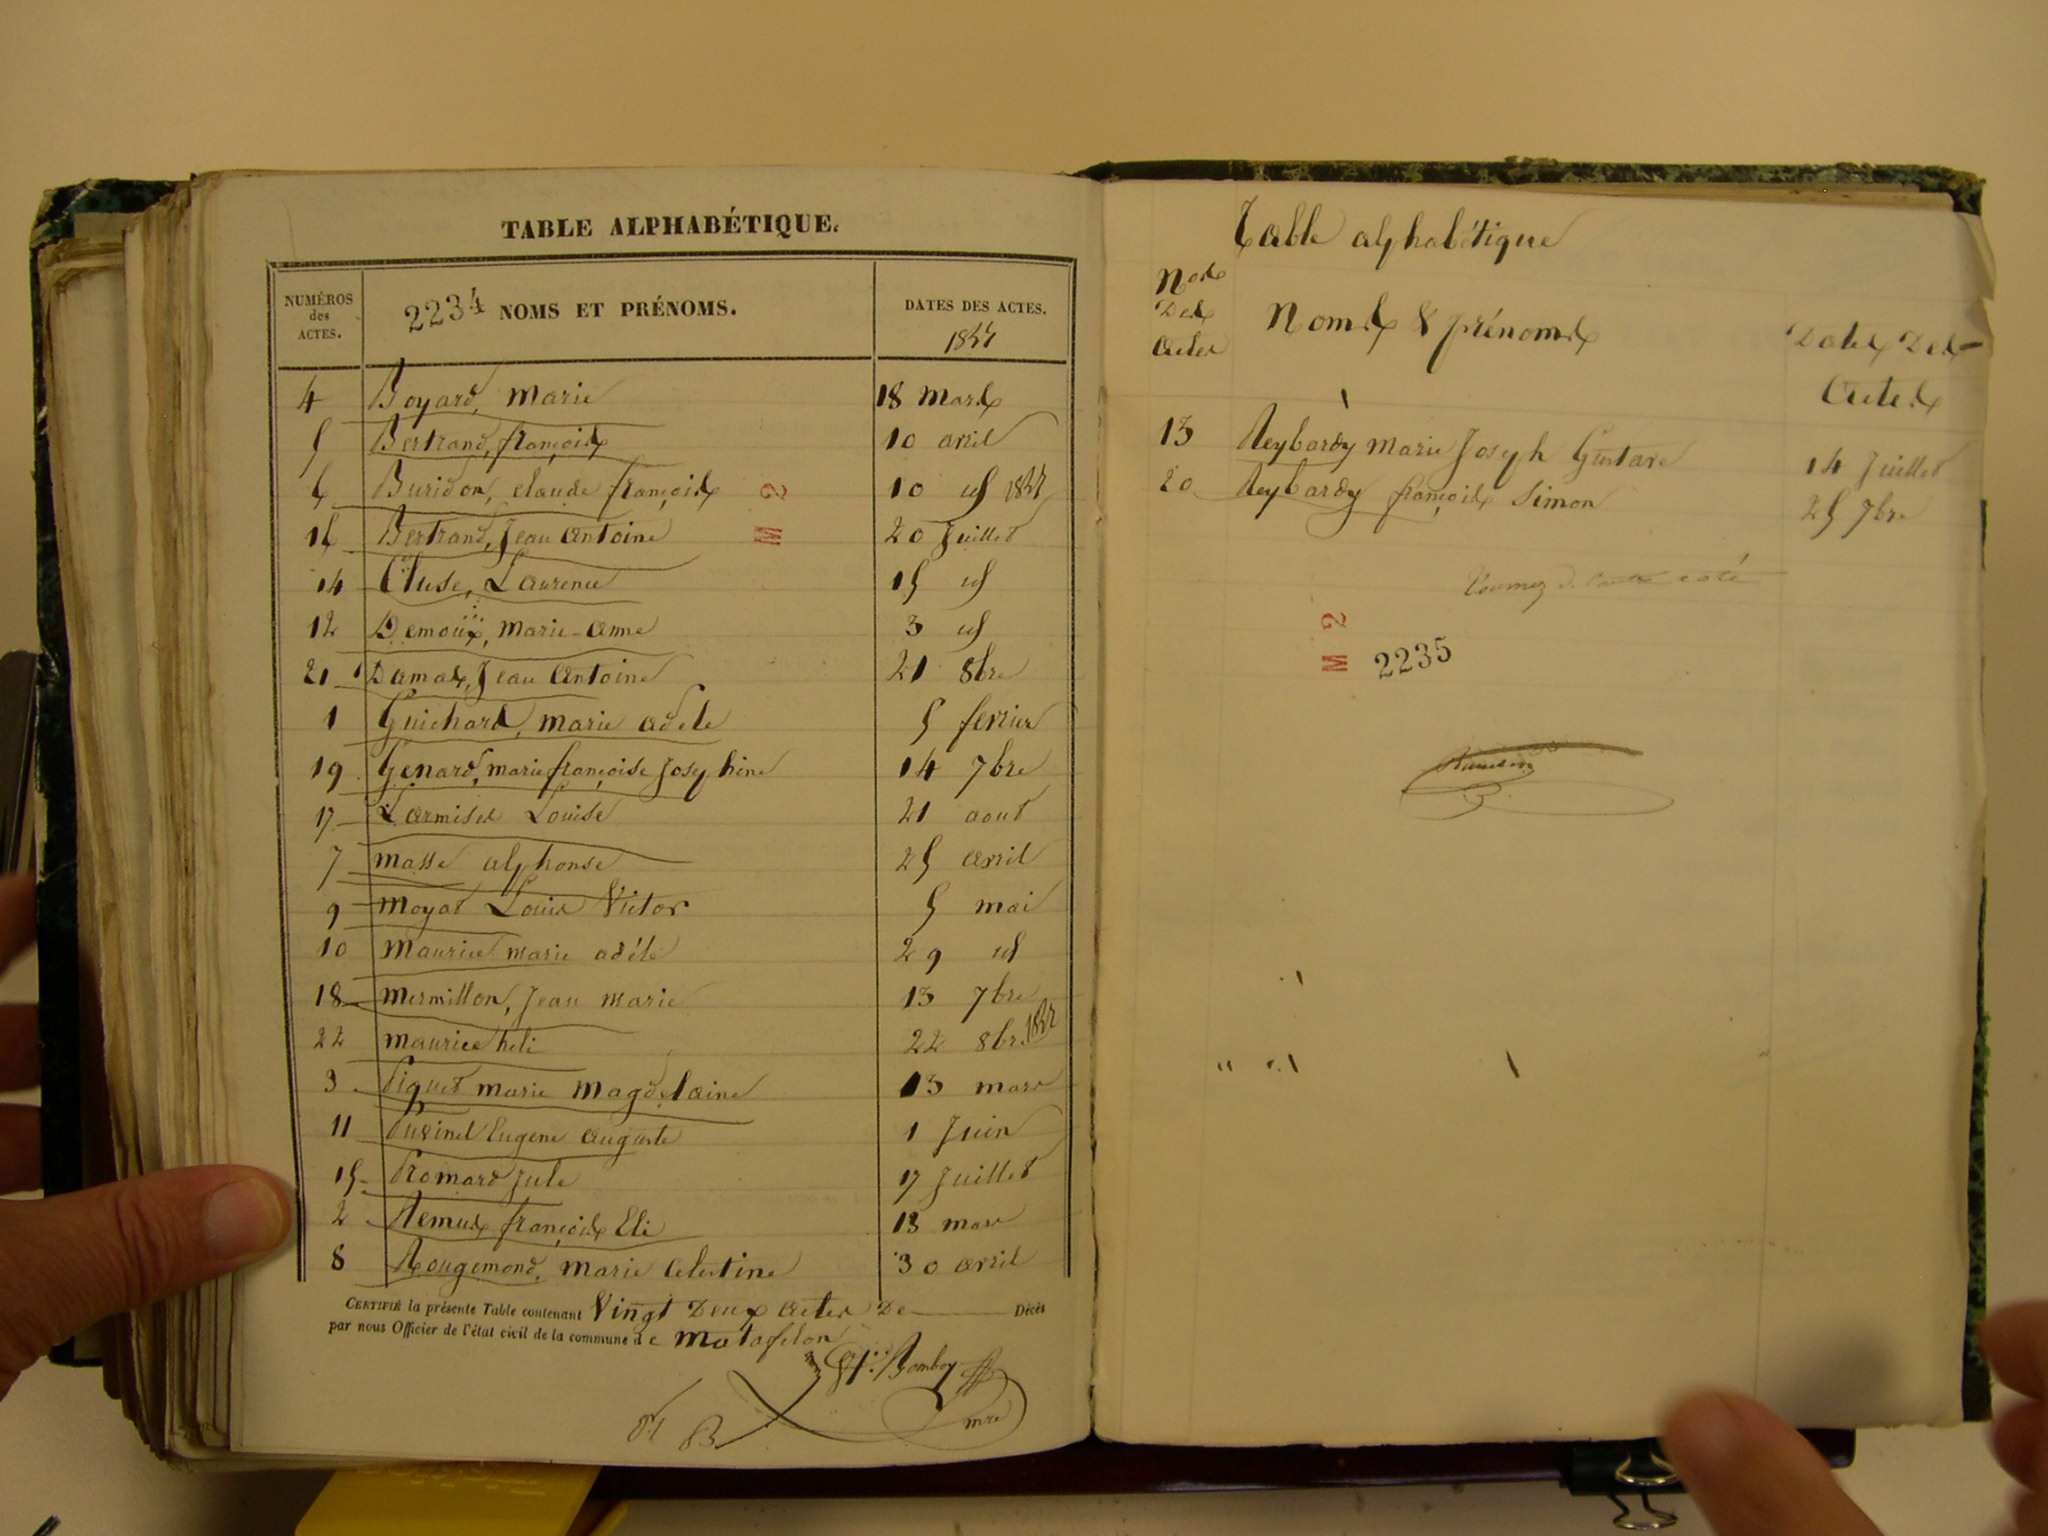 TABLE ALPHABÉTIQUE.
NUMÉROS des ACTES.
2234 NOMS ET PRÉNOMS.
DATES DES ACTES.
4 Boyard, Marie 18 Mars
5 Bertrand, françois 10 avril
6 Buridon, claude françois 10 id
16 Bertrand, Jean Antoine 20 Juillet
14 Cluse, Laurence 15 id
12 Demoux, Marie-Anne 3 id
21 Damas, Jean Antoine 21 8bre
1 Guichard, marie adele 5 fevrier
19 Genard, marie françoise Josephine 14 7bre
17 Larmises Louise 21 aout
7 Masse alphonse 25 avril
9 Moyat Louis Victor 5 mai
10 Maurice marie adéle 29 id
18 Mermillon, Jean Marie 13 7bre
22 Maurice heli 22 8bre
3 Piquet marie Magdelaine 13 mars
11 Eugene Auguste 1 Juin
15 Romard Jule 17 Juillet
2 Remus françois Eli 13 mars
8 Rougemond, Marie Celestine 30 avril
CERTIFIÉ la présente Table contenant Vingt Deux actes De Décès
par nous Officier de l'état civil de la commune de Matafelon
Bomboy
mre
M 2
Table alphabétique
Nos Des Actes
Noms & prénoms
Dates Des Actes
13 Reybardy Marie Joseph Gustave 14 Juillet
20 Reybardy françois Simon 25 7bre
Tournez de l'autre coté
M 2
2235